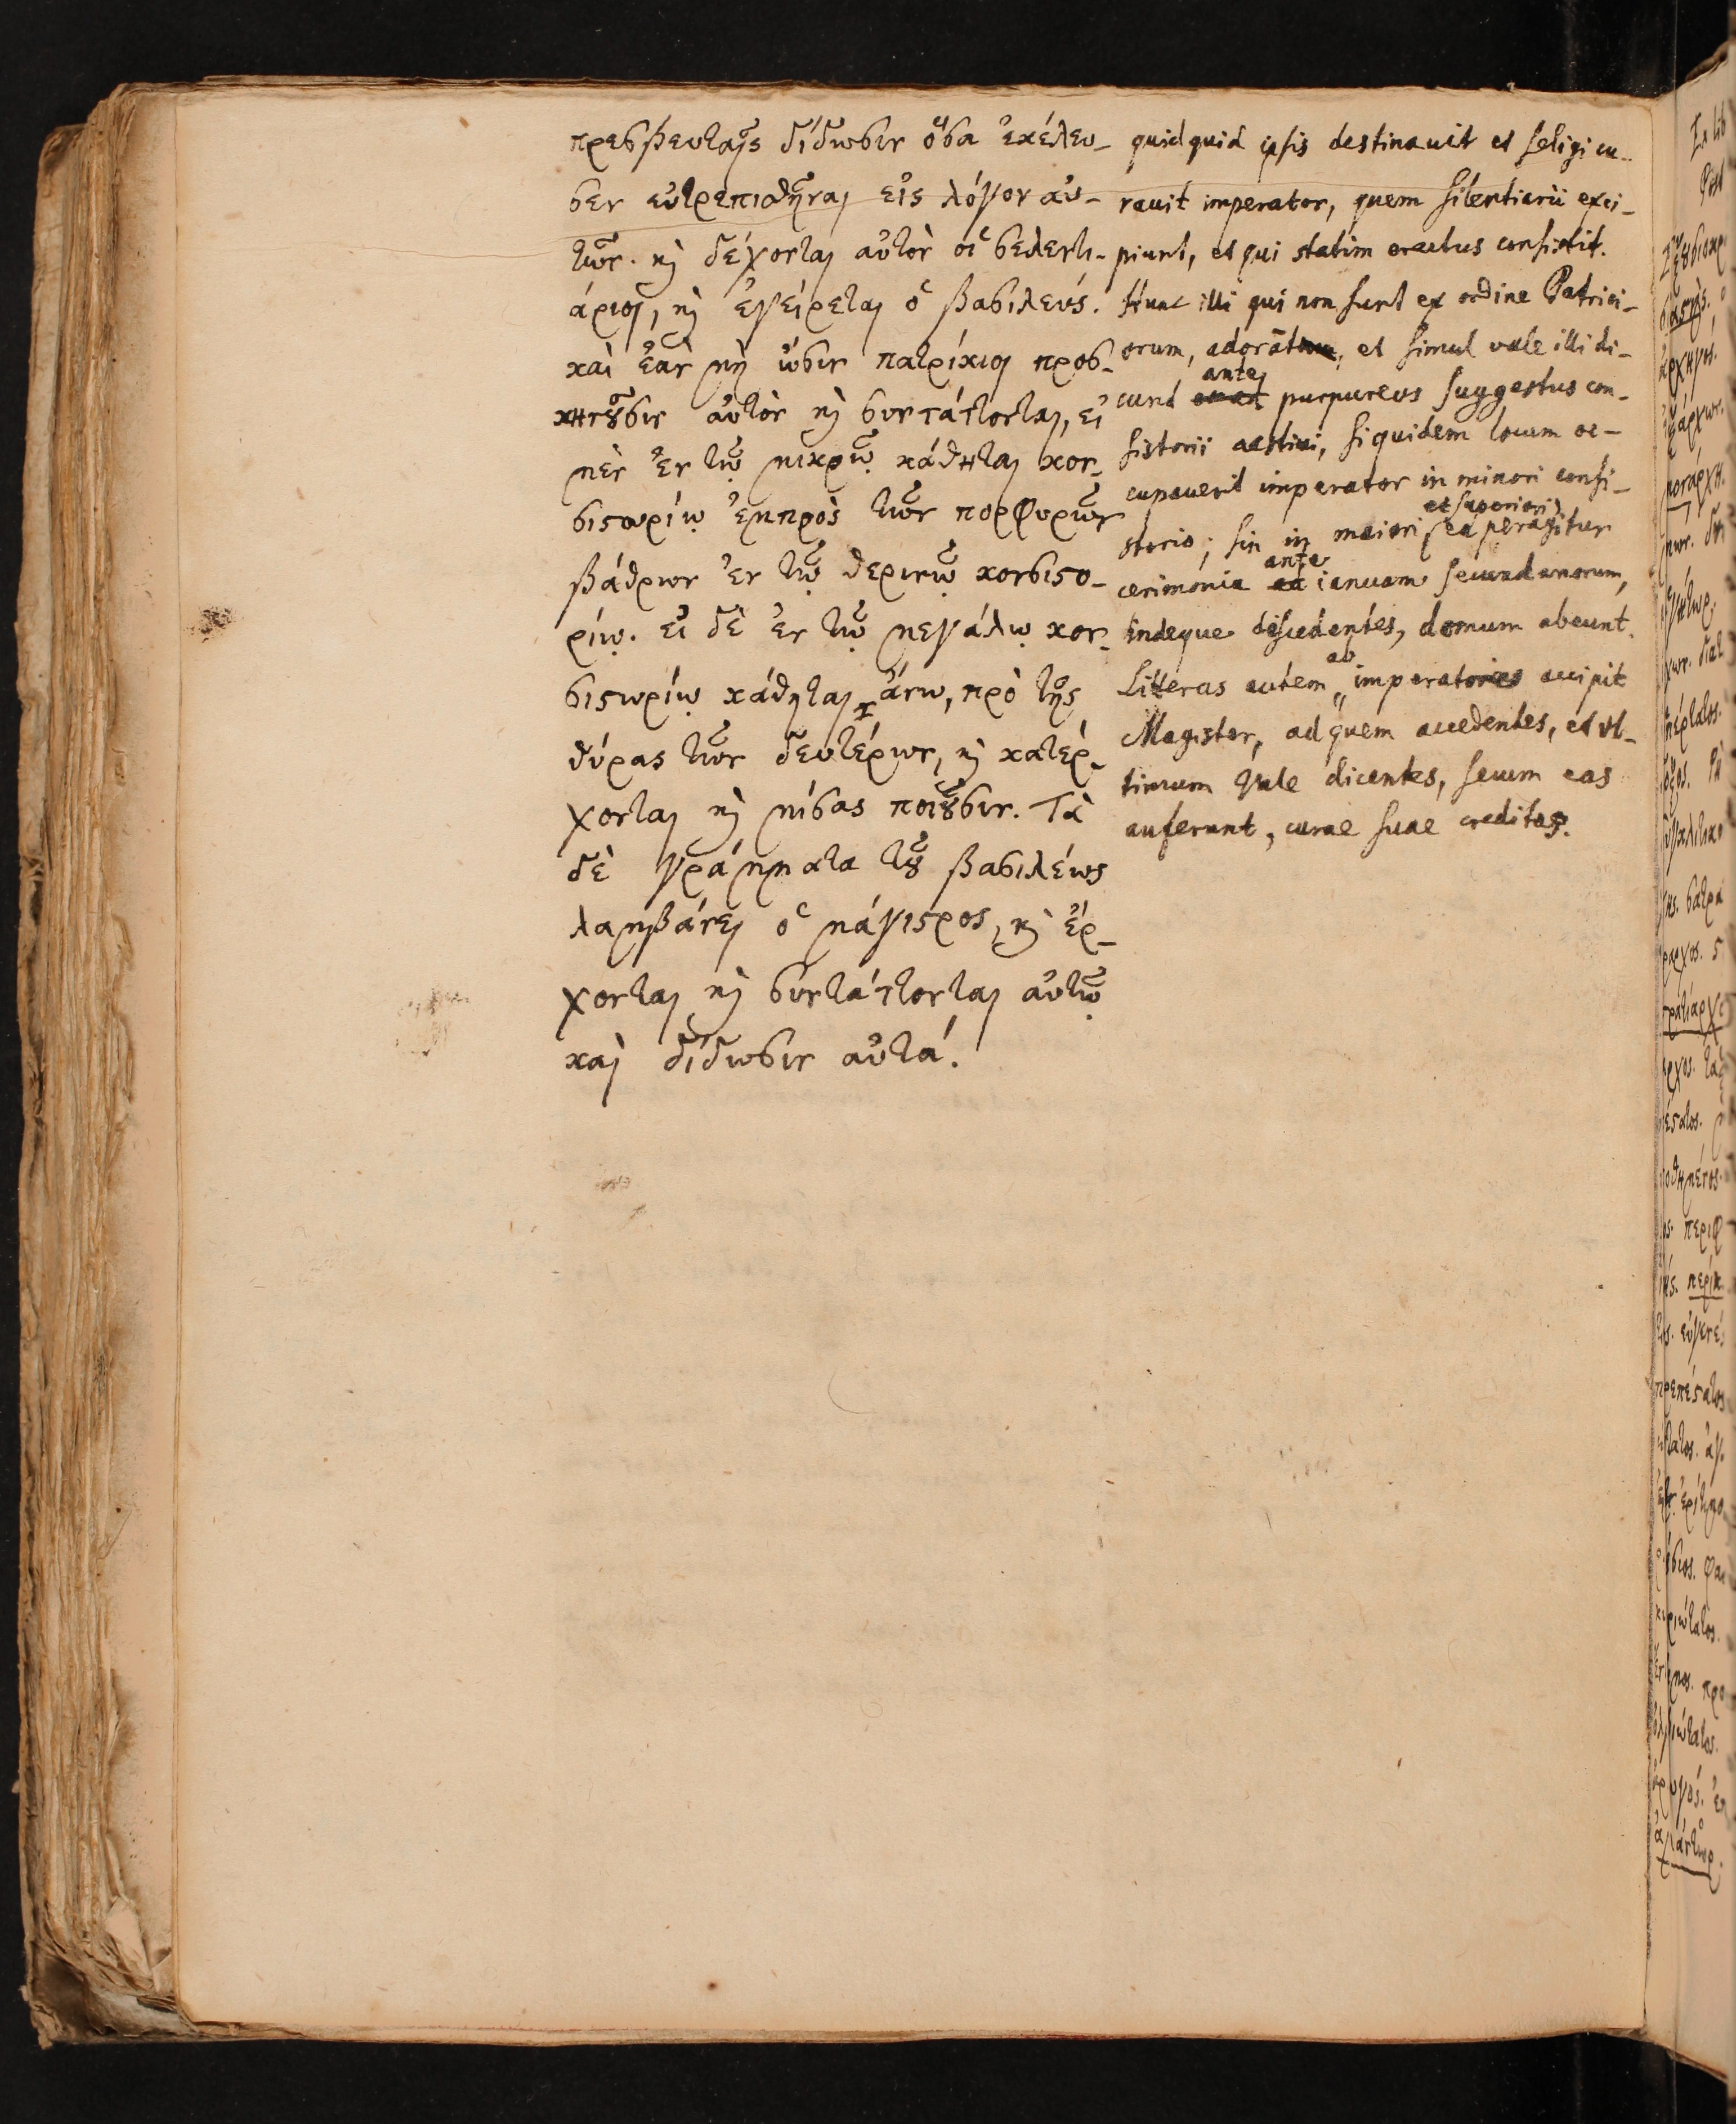 πρεσβευταῖς δίδωσιν ὅσα ἐκέλευ-
σεν εὐτρεπισθῆναι εἰς λόγον αὐ-
τῶν. κὶ δέχονται αὐτὸν οἱ σελεντι-
άριοι, κὶ ἐγείρεται ὁ βασιλεύς.
καὶ ἐὰν μὴ ὦσιν πατρίκιοι προσ-
κηνοῦσιν αὐτὸν κὶ συντάττονται, εἰ
μὲν ἐν τῷ μικρῷ κάθηται κον-
σιστωρίῳ ἐμπρὸς τῶν πορφυρῶν
βάθρων ἐν τῷ θερινῷ κονσιστο-
ρίῳ. εἰ δὲ ἐν τῷ μεγάλῳ κον-
σιστωρίῳ κάθηται ἄνω, πρὸ τῆς
θύρας τῶν δευτέρων, κὶ κατέρ-
χονται κὶ μίσας ποιοῦσιν. Τὰ
δὲ γράμματα τοῦ βασιλέως
λαμβάνει ὁ μάγιστρος, κὶ ἔρ-
χονται κὶ συντάττονται αὐτῷ
καὶ δίδωσιν αὐτά.
quidquid ipsis destinavit et seligi cu-
ravit imperator, quem silentiarii exci-
piunt, et qui statim erectus consistit.
Hunc illi qui non sunt ex ordine Patrici-
orum, adorāt, et simul vale illi di-
cunt ante purpureos suggestus con-
sistorii aestivi, siquidem locum oc-
cupaverit imperator in minori consi-
storio; sin in maiori et superiori ea peragitur
cerimonia ante ianuam secundanorum,
indeque discedentes, domum abeunt.
Litteras autem ab imperatore accipit
Magister, ad quem accedentes, et ul-
timum Vale dicentes, secum eas
auferunt, curae suae creditas.